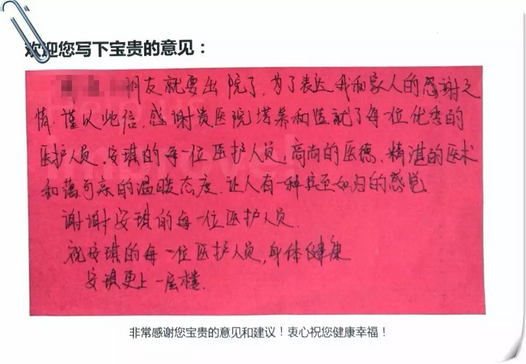 欢迎您写下宝贵的意见：
朋友就要出院了，为了表达我和家人的感谢之
情，谨以此信，感谢贵医院培养和造就了每一位优秀的
医护人员，安琪的每一位医护人员，高尚的医德，精湛的医术
和蔼可亲的温暖态度，让人有一种宾至如归的感觉
谢谢安琪的每一位医护人员
祝安琪的每一位医护人员，身体健康
安琪更上一层楼.
非常感谢您宝贵的意见和建议！衷心祝您健康幸福！